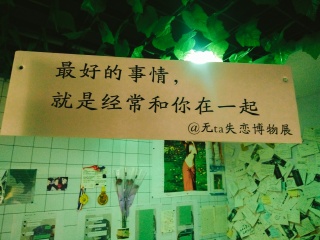 最好的事情，
就是经常和你在一起
@无ta失恋博物展